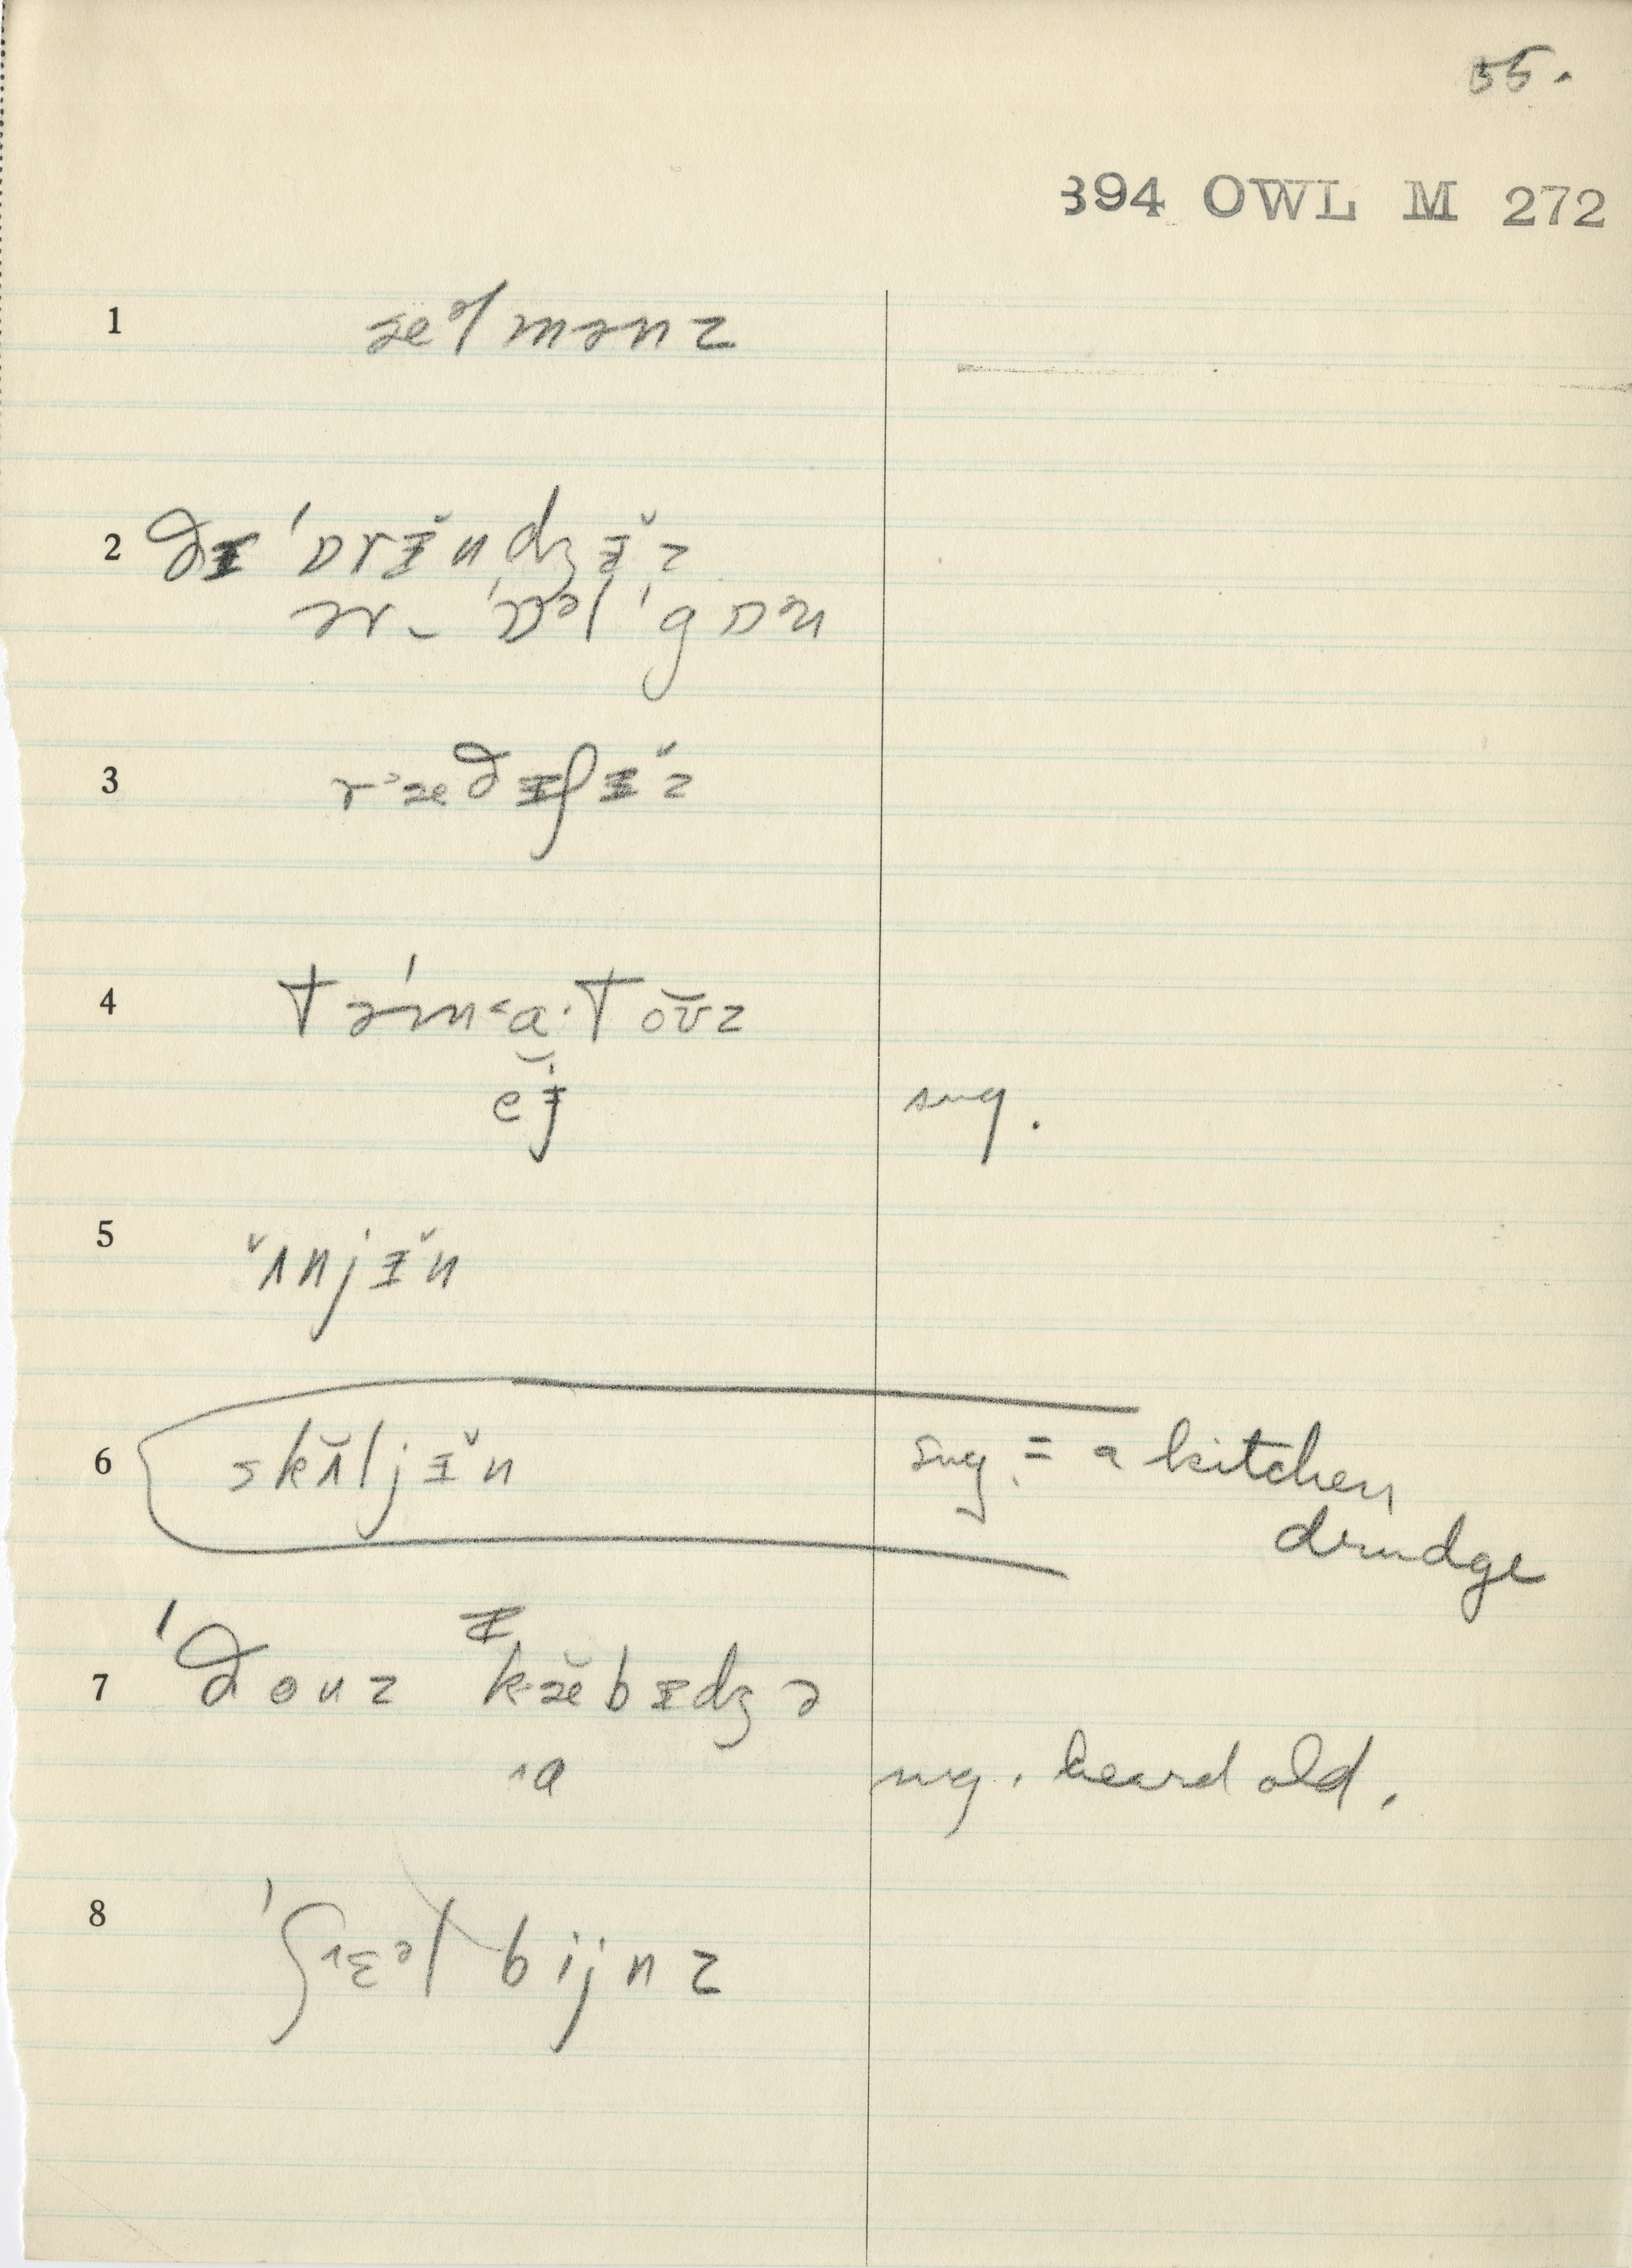 55.
394 OWL M 272
1 æᵊlmənz
2 ðɪ 'ɒrɪ̆ndʒɪ̆z
ər_ 'ɒᵊl 'gɒən
3 r˃æᵭɪʃɪ̆z
4 tə'm˂a·toʊ̆z
eɪ̆ sug.
5 ˇʌnjɪ̆n
6 skʌ̆ljɪ̆n sug. = a kitchen
drudge
7 'ðouz ɪ
kæ̆bɪdʒə
˄a sug. heard old.
8 'ʃ˄ɛᵊl bijnz